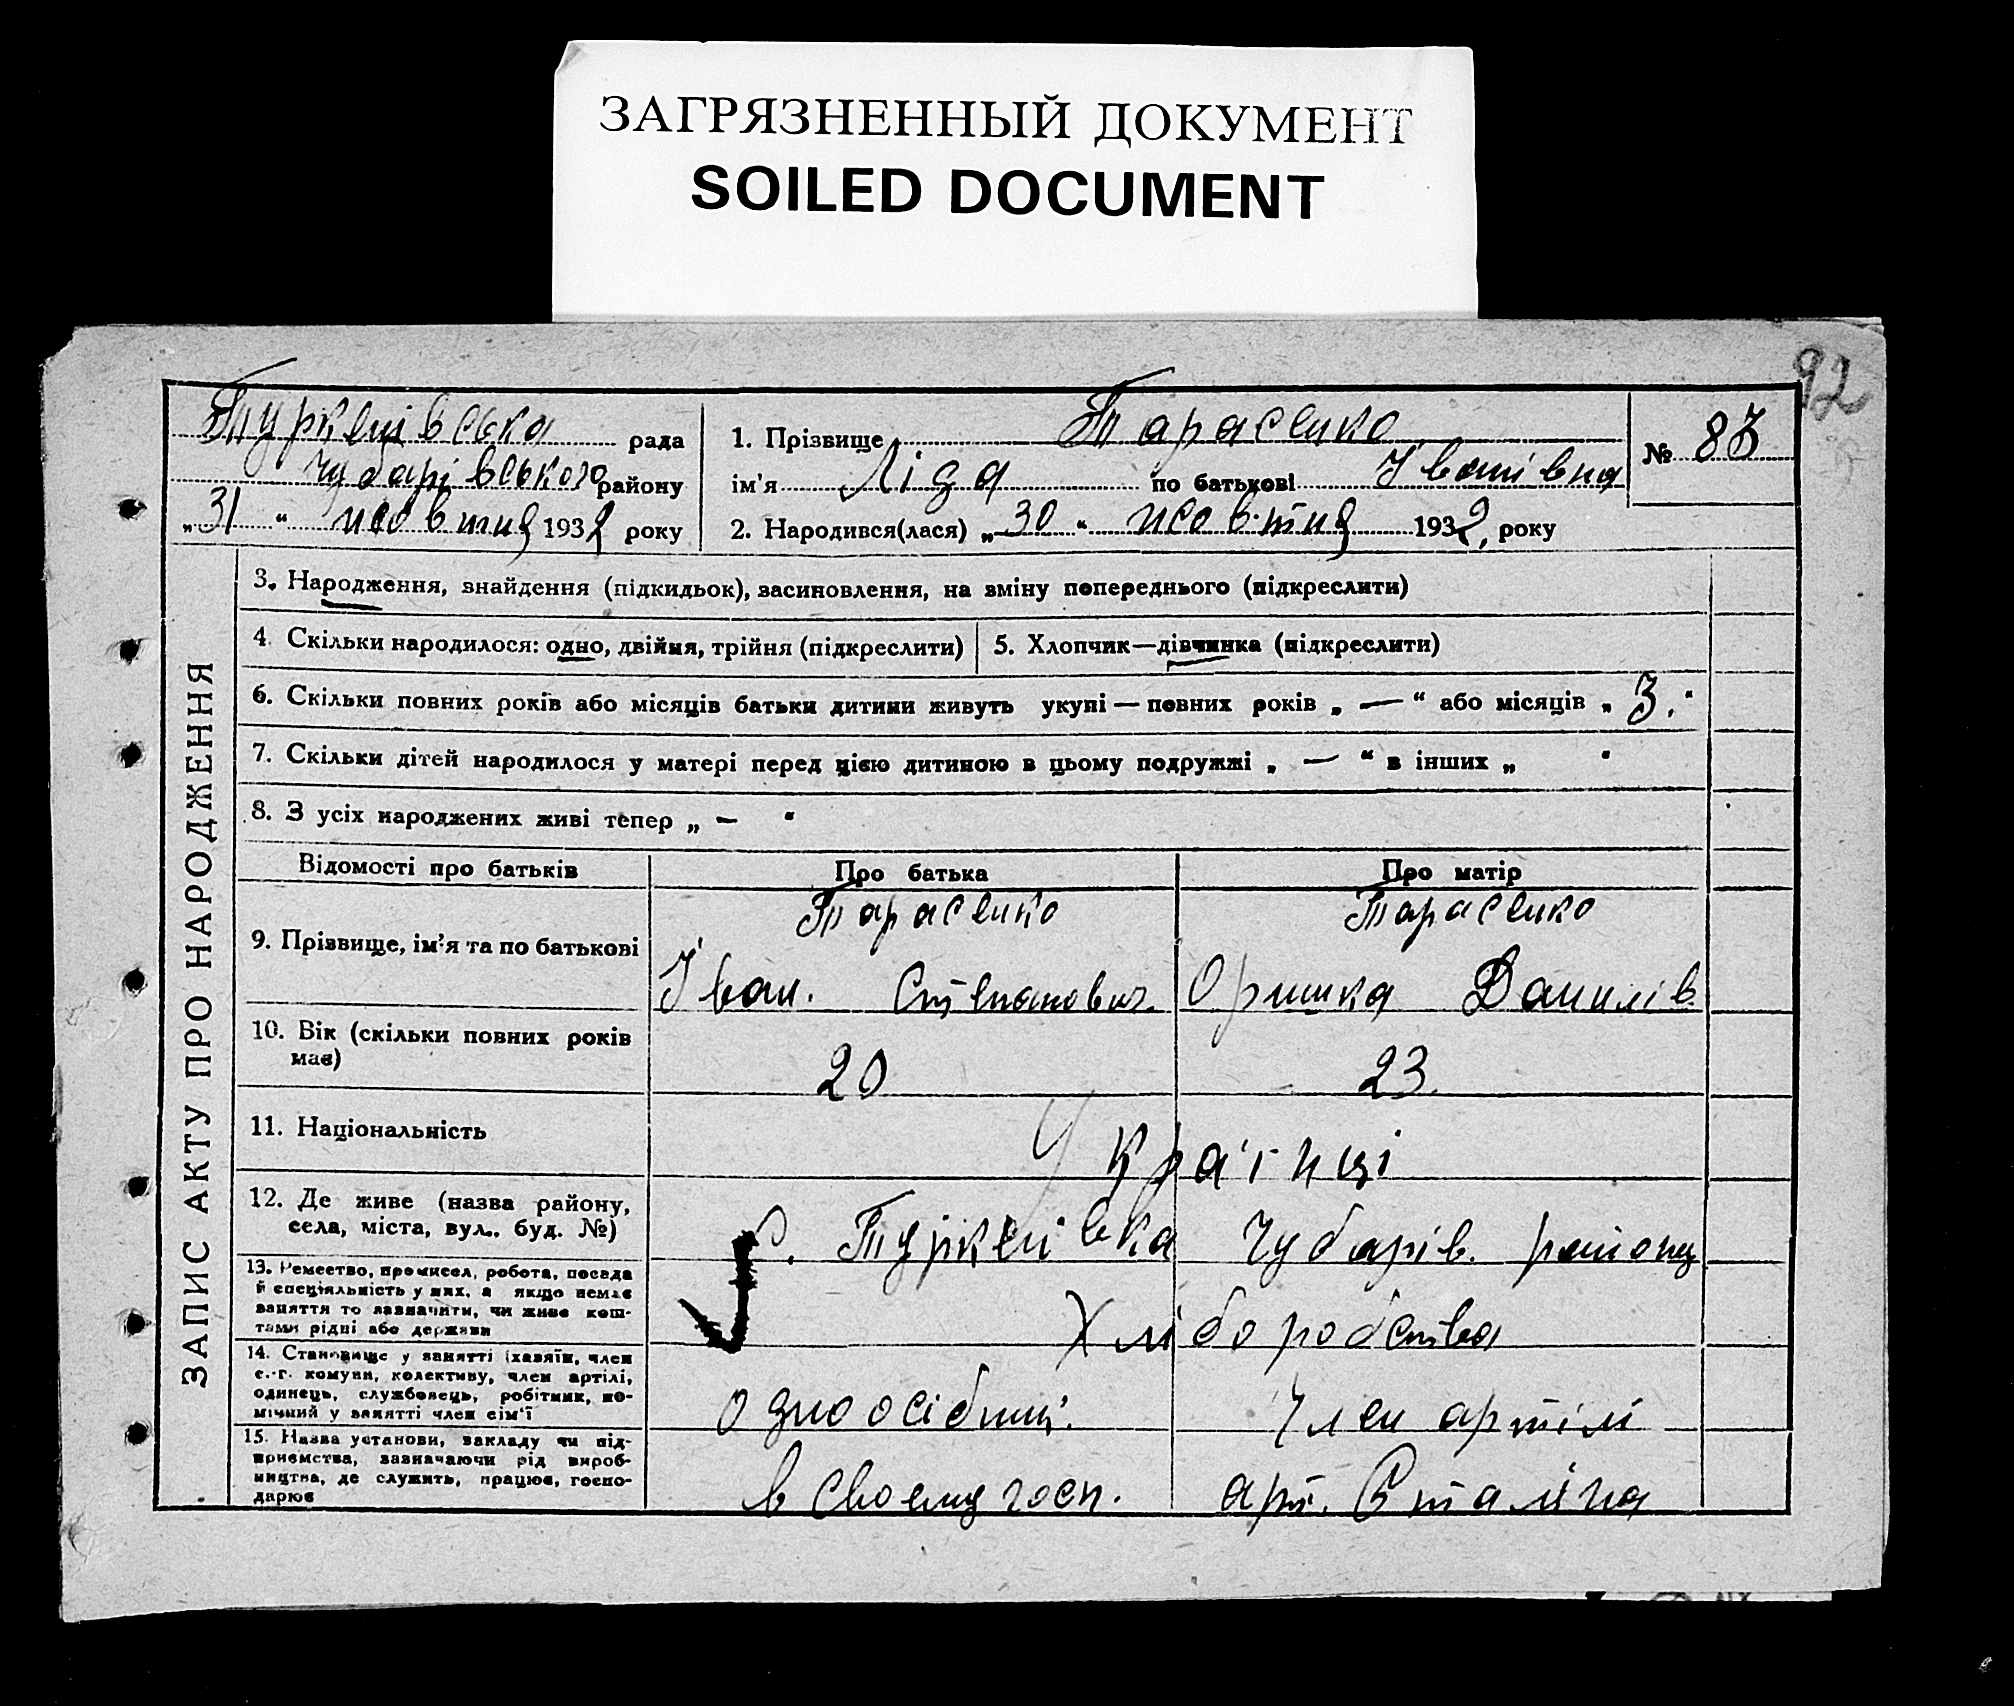 ЗАГРЯЗНЕННЫЙ ДОКУМЕНТ
SOILED DOCUMENT
92
Туркенівська рада
Чубарівського району
„31“ жовтня 1932 року
1. Прізвище Тарасенко
ім'я Ліза по батькові Іванівна
2. Народився(лася) „30“ жовтня 1932, року
№ 83
ЗАПИС АКТУ ПРО НАРОДЖЕННЯ
3. Народження, знайдення (підкидьок), засиновлення, на зміну попереднього (підкреслити)
4. Скільки народилося: одно, двійня, трійня (підкреслити)
5. Хлопчик—дівчинка (підкреслити)
6. Скільки повних років або місяців батьки дитини живуть укупі — повних років „ — “ або місяців „ 3. “
7. Скільки дітей народилося у матері перед цією дитиною в цьому подружжі „ — “ в інших „ “
8. З усіх народжених живі тепер „ — “
Відомості про батьків Про батька Про матір
9. Прізвище, ім'я та по батькові
Тарасенко Тарасенко
Іван. Степанович. Оришка Данилів
10. Вік (скільки повних років
має)
20 23
11. Національність
Українці
12. Де живе (назва району,
села, міста, вул., буд. №)
с. Туркенівка Чубарів. району
13. Ремество, промисел, робота, посада
й спеціяльність у них, а якщо немає
заняття то зазначити, чи живе кош-
тами рідні або держави
Хліборобства
14. Становище у занятті (хазяїн, член
с.-г. комуни, колективу, член артілі,
одинець, службовець, робітник, по-
мічний у занятті член сім'ї
одноосібниц. Член артілі
15. Назва установи, закладу чи під-
приємства, зазначаючи рід вироб-
ництва, де служить, працює, госпо-
дарює
в своему госп. арт. Сталіна